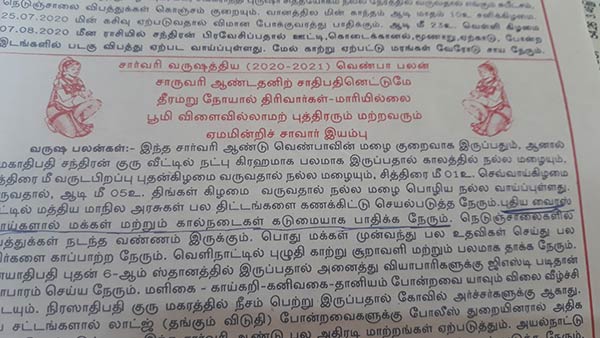 நெடுஞ்சாலை விபத்துக்கள்
25.07.2020 மின் கசிவு ஏற்படுவதால் விமான போக்குவரத்து பாதிக்கும். ஆடி மீ 23உ வெள்ளி கிழமை
07.08.2020 மீன ராசியில் சந்திரன் பிரவேசிப்பதால் ஊட்டி, கொடைக்கானல், மூணாறு, ஏற்காடு, போன்ற
இடங்களில் படகு விபத்து ஏற்பட வாய்ப்புள்ளது. மேல் காற்று ஏற்பட்டு மரங்கள் வேரோடு சாய நேரும்.
சார்வரி வருஷத்திய (2020-2021) வெண்பா பலன்
சாருவரி ஆண்டதனிற் சாதிபதினெட்டுமே
தீரமறு நோயால் திரிவார்கள்-மாரியில்லை
பூமி விளைவில்லாமற் புத்திரரும் மற்றவரும்
ஏமமின்றிச் சாவார் இயம்பு
வருஷ பலன்கள்:- இந்த சார்வரி ஆண்டு வெண்பாவின் மழை குறைவாக இருப்பதும், ஆனால்
மகாதிபதி சந்திரன் குரு வீட்டில் நட்பு கிரஹமாக பலமாக இருப்பதால் காலத்தில் நல்ல மழையும்,
த்திரை மீ வருடபிறப்பு புதன்கிழமை வருவதால் நல்ல மழையும், சித்திரை மீ 01உ செவ்வாய்கிழமை
ருவதால், ஆடி மீ 05உ திங்கள் கிழமை வருவதால் நல்ல மழை பொழிய நல்ல வாய்ப்புள்ளது.
ட்டில் மத்திய மாநில அரசுகள் பல திட்டங்களை கணக்கிட்டு செயல்படுத்த நேரும். புதிய வைரஸ்
ாய்களால் மக்கள் மற்றும் கால்நடைகள் கடுமையாக பாதிக்க நேரும். நெடுஞ்சாலைகளில்
பத்துக்கள் நடந்த வண்ணம் இருக்கும். பொது மக்கள் முன்வந்து பல உதவிகள் செய்து பல
ிர்களை காப்பாற்ற நேரும். வெளிநாட்டில் புழுதி காற்று சூறாவளி மற்றும் பலமாக தாக்க நேரும்.
ாயாதிபதி புதன் 6-ஆம் ஸ்தானத்தில் இருப்பதால் அனைத்து வியாபாரிகளுக்கு ஜிஎஸ்டி படிதான்
பாரம் செய்ய நேரும். மளிகை - காய்கறி-கனிவகை-தானியம் போன்றவை யாவும் விலை வீழ்ச்சி
டையும். நிரஸாதிபதி குரு மகரத்தில் நீசம் பெற்று இருப்பதால் கோவில் அர்ச்சர்களுக்கு ஆகாது.
சட்டங்களால் லாட்ஜ் (தங்கும் விடுதி) போன்றவைகளுக்கு போலீஸ் துறையினரால் அதிக
சார்வரி ஆண்டு பல அதிரடி மாற்றங்கள் ஏற்படுத்தும். அயல்நாட்டு